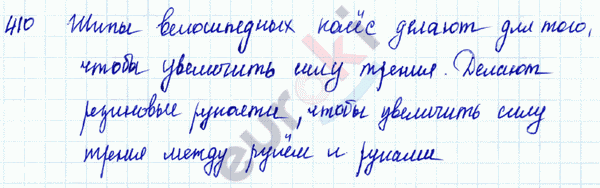 410 Шипы велосипедных колёс делают для того,
чтобы увеличить силу трения. Делают
резиновые рукояти, чтобы увеличить силу
трения между рулём и руками
euroki